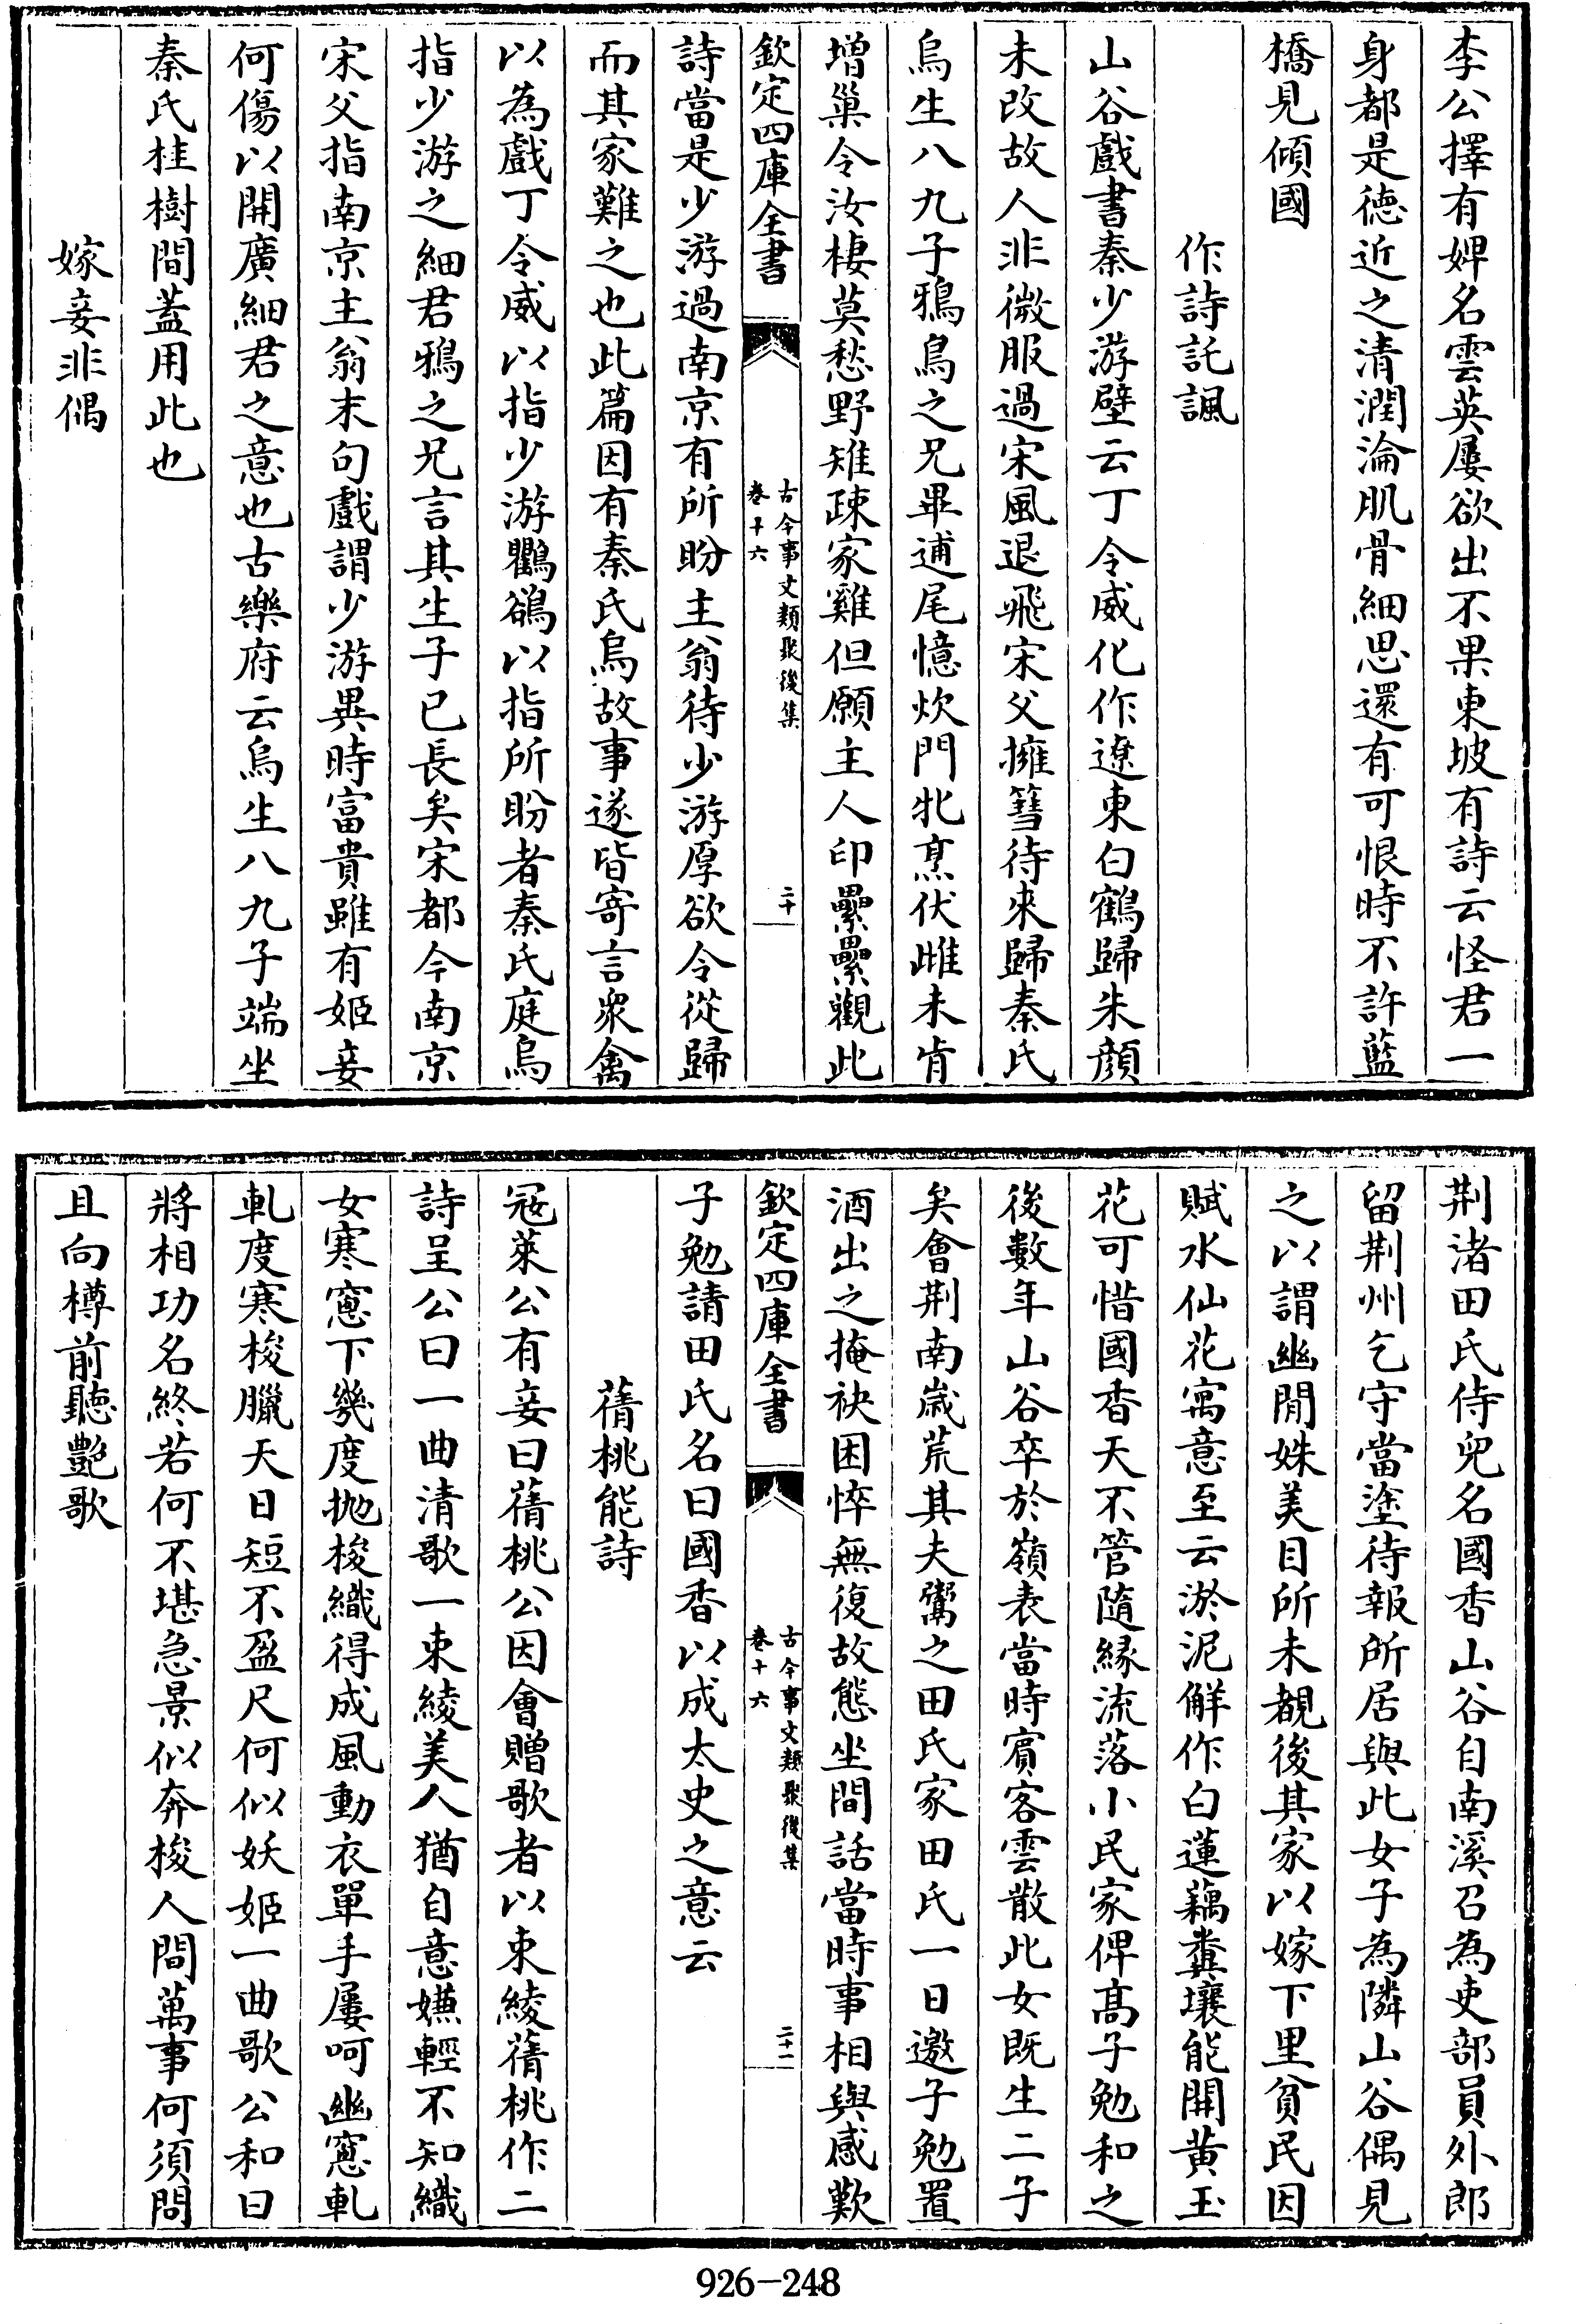 李公擇有婢名雲英屢欲出不果東坡有詩云怪君一
身都是徳近之清潤淪肌骨細思還有可恨時不許藍
橋見傾國
作詩託諷
山谷戲書秦少游壁云丁令威化作遼東白鶴歸朱顏
未改故人非微服過宋風退飛宋父擁篲待來歸秦氏
烏生八九子鴉鳥之兄畢逋尾憶炊門牝烹伏雌未肯
增巢令汝棲莫愁野雉疎家雞但願主人印纍纍觀此
欽定四庫全書
古今事文類聚後集
卷十六
二十
詩當是少游過南京有所盼主翁待少游厚欲令從歸
而其家難之也此篇因有秦氏烏故事遂皆寄言衆禽
以為戲丁令威以指少游鸜鵒以指所盼者秦氏庭烏
指少游之細君鴉之兄言其生子已長矣宋都今南京
宋父指南京主翁末句戲謂少游異時富貴雖有姬妾
何傷以開廣細君之意也古樂府云烏生八九子端坐
秦氏桂樹間蓋用此也
嫁妾非偶
荆渚田氏侍兒名國香山谷自南溪召為吏部員外郎
留荆州乞守當塗待報所居與此女子為隣山谷偶見
之以謂幽閒姝美目所未覩後其家以嫁下里貧民因
賦水仙花寓意至云淤泥解作白蓮藕糞壤能開黄玉
花可惜國香天不管隨緣流落小民家俾髙子勉和之
後數年山谷卒於嶺表當時賓客雲散此女既生二子
矣會荆南歳荒其夫鬻之田氏家田氏一日邀子勉置
酒出之掩袂困悴無復故態坐間話當時事相與感歎
欽定四庫全書
古今事文類聚後集
卷十六
二十一
子勉請田氏名曰國香以成太史之意云
蒨桃能詩
冦萊公有妾曰蒨桃公因會贈歌者以束綾蒨桃作二
詩呈公曰一曲清歌一束綾美人猶自意嫌輕不知織
女寒窻下幾度抛梭織得成風動衣單手屢呵幽窻軋
軋度寒梭臘天日短不盈尺何似妖姬一曲歌公和曰
將相功名終若何不堪急景似奔梭人間萬事何須問
且向樽前聽艶歌
926-248